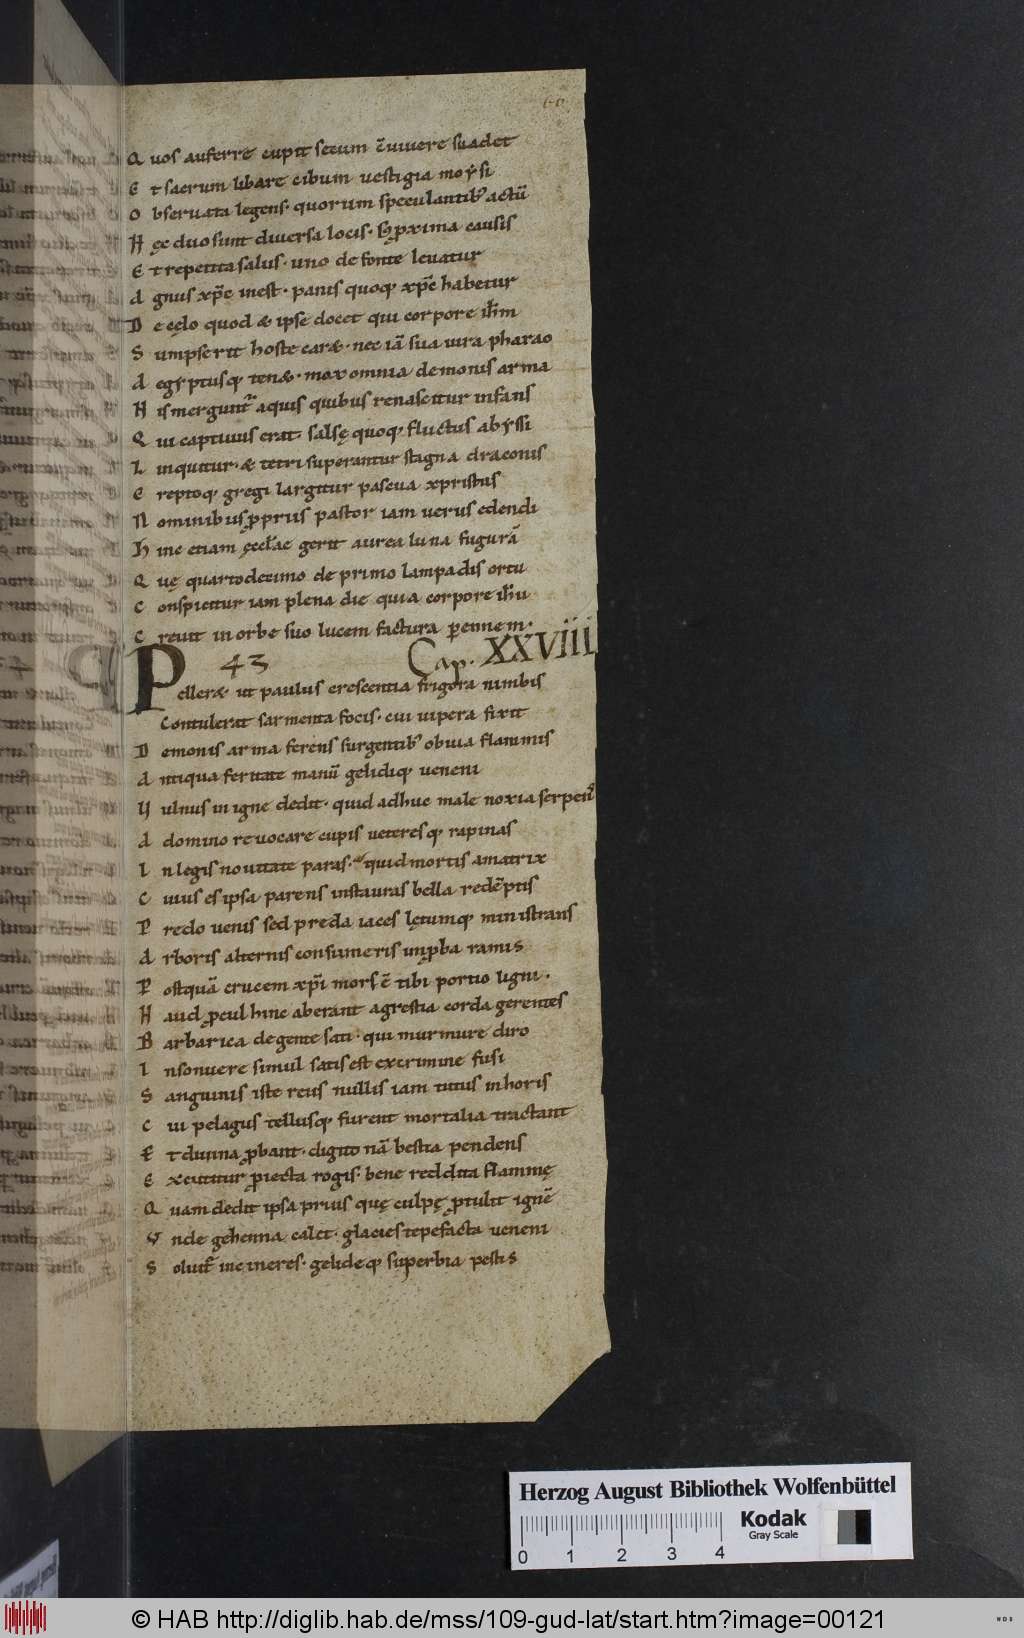 60
Q uos auferre cupit secum c̄uiuere suadet
E t sacrum libare cibum uestigia moẏsi
O bseruata legens· quorum speculantib; actū
H ęc duo sunt diuersa locis· s; ꝓxima causis
E t repetita salus· uno de fonte leuatur
A gnus xp̄c inest· panis quoq; xp̄c habetur
D e cęlo quod & ipse docet qui corpore ih̄m
S umpserit hoste car&· nec iā sua iura pharao
A egẏptusq; ten&· mox omnia demonis arma
H is mergunt᷑ aquis quibus renascitur infans
Q ui captiuus erat· salsę quoq; fluctus abẏssi
L inquitur· & tetri superantur stagna draconis
E reptoq; gregi largitur pascua xpristus
N ominibus ꝓpriis pastor iam uerus edendi
H inc etiam ęccl̄ae gerit aurea luna figurā
Q uę quartodecimo de primo lampadis ortu
C onspicitur iam plena die quia corpore ih̄u
C reuit in orbe suo lucem factura ꝑennem·
43 Cap. XXVIII
P eller& ut paulus crescentia frigora nimbis
Contulerat sarmenta focis· cui uipera fixit
D emonis arma ferens surgentib; obuia flammis
A ntiqua feritate manū gelidiq; ueneni
U ulnus in igne dedit· quid adhuc male noxia serpen̄s
A domino reuocare cupis ueteresq; rapinas
I n legis nouitate paras· quid mortis amatrix
C uius es ipsa parens instauras bella redēptis
P redo uenis sed preda iaces lętumq; ministrans
A rboris alternis consumeris inꝓba ramis
P ostquā crucem xp̄i mors ē tibi portio ligni·
H aud ꝓcul hinc aberant agrestia corda gerentes
B arbarica de gente sati· qui murmure diro
I nsonuere simul satis est ex crimine fusi
S anguinis iste reus nullis iam tutus in horis
C ui pelagus tellusq; furent mortalia tractant
E t diuina ꝓbant· digito nā bestia pendens
E xcutitur ꝓiecta rogis· bene reddita flammę
Q uam dedit ipsa prius quę culpę ꝓtulit ignē
V nde gehenna calet· glacies tepefacta ueneni
S oluit᷑ in cineres· gelideq; superbia pestis
Herzog August Bibliothek Wolfenbüttel
Kodak
Gray Scale
0 1 2 3 4
© HAB http://diglib.hab.de/mss/109-gud-lat/start.htm?image=00121
WDB